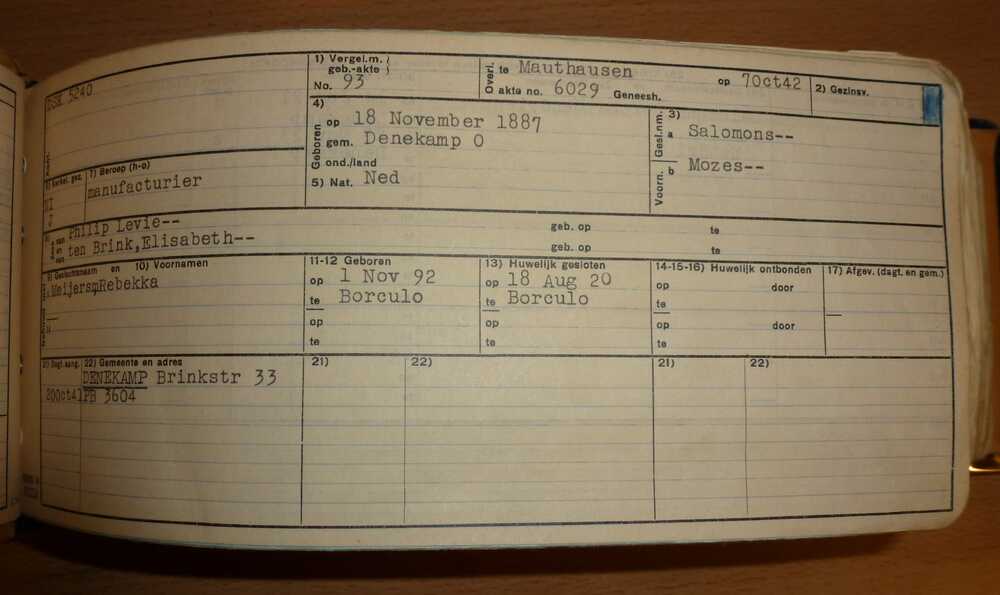 5240
1) Vergel.m.
geb.-akte
No. 93
Overl. te Mauthausen op 7Oct42
akte no. 6029 Geneesh.
2) Gezinsv.
4)
Geboren
op 18 November 1887
gem. Denekamp O
ond./land
5) Nat. Ned
3)
Gesl.nm. a Salomons--
Voorn. b Mozes--
7) Beroep (h-o)
manufacturier
Philip Levie-- geb. op te
en
van ten Brink,Elisabeth-- geb. op te
9) Geslachtsnaam en 10) Voornamen
Meijersm,Rebekka
11-12 Geboren
op 1 Nov 92
te Borculo
op
te
13) Huwelijk gesloten
op 18 Aug 20
te Borculo
op
te
14-15-16) Huwelijk ontbonden
op door
te
op door
te
17) Afgev. (dagt. en gem.)
21) Dagt. aang. 22) Gemeente en adres 21) 22) 21) 22)
DENEKAMP Brinkstr 33
20Oct41 PB 3604